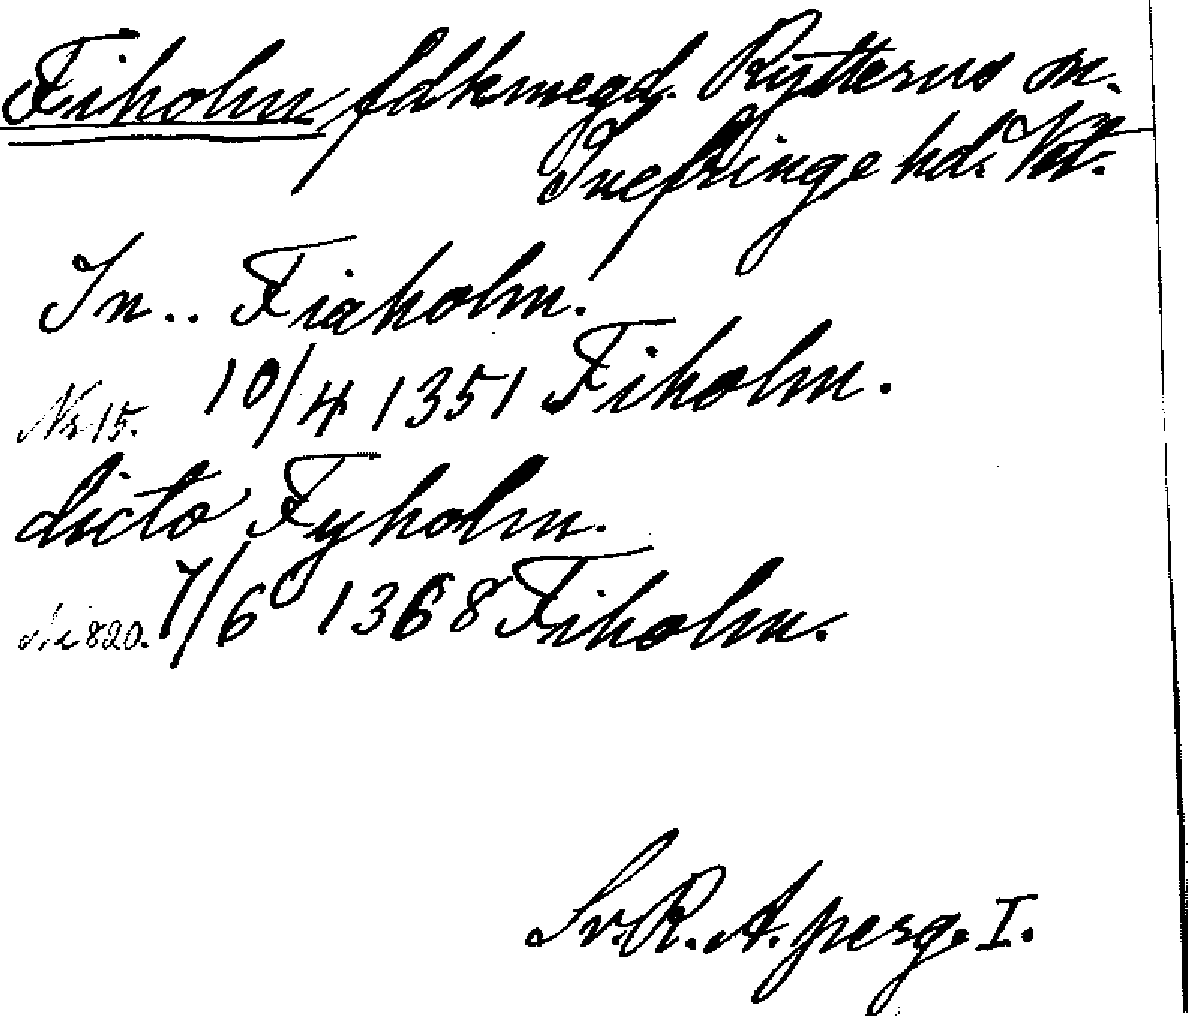 Fiholm fdkmegd. Rytterns sn.
Snefringe hd. Vst.
In.. Fiæholm.
Nr 15. 10/4 1351 Fiholm.
dicto Fyholm.
Nr 820. 7/6 1368 Fiholm.
Sv. R. A. perg. I.